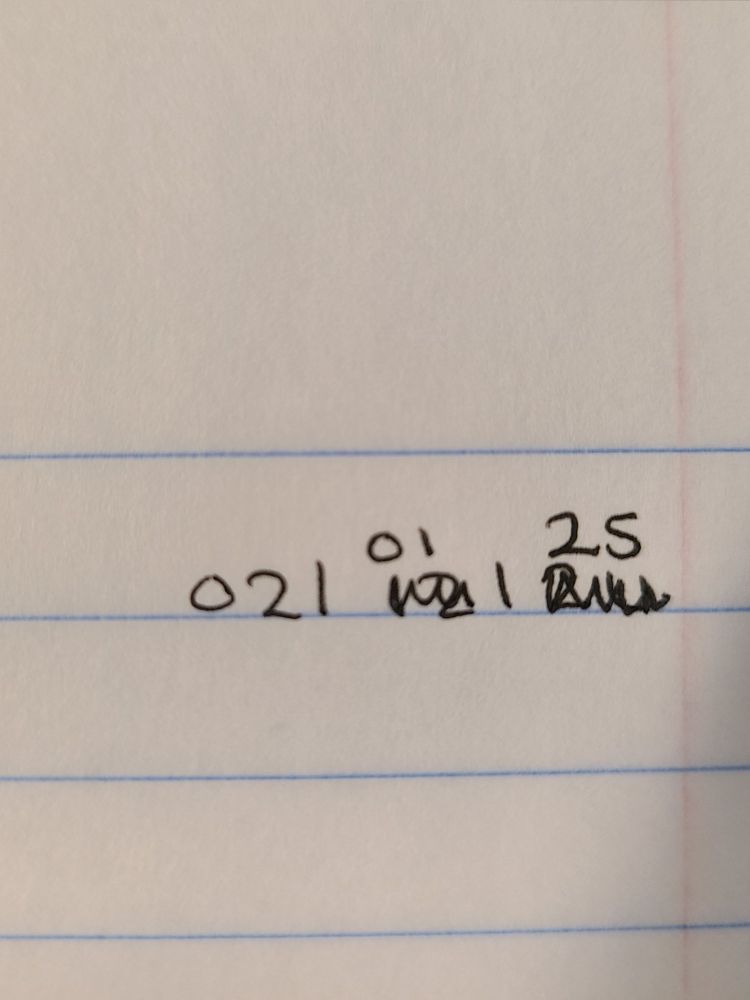 01 25
021 1